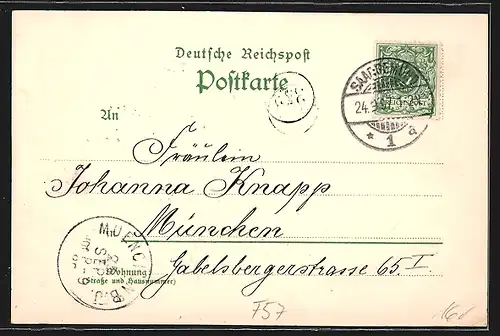 Deutsche Reichspost
Postkarte
An
Fräulein
Johanna Knapp
München
Wohnung
(Straße und Hausnummer)
Gabelsbergerstrasse 65 I
24.9
* 1 a
F57